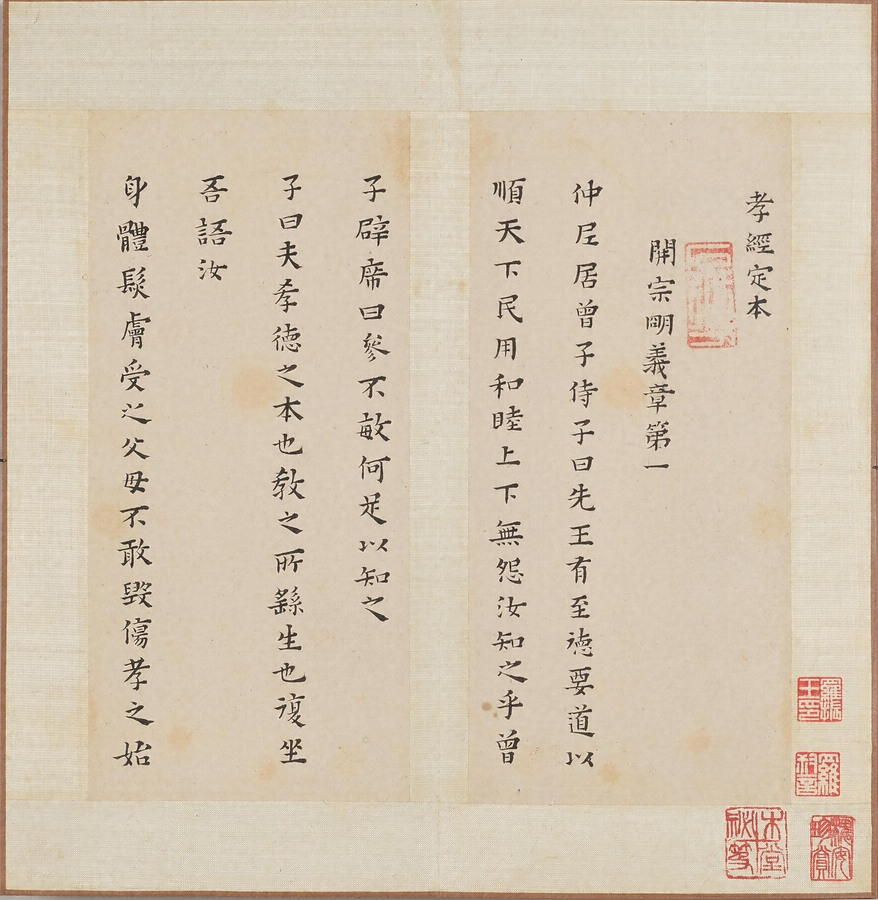 孝經定本
開宗明義章第一
仲尼居曾子侍子曰先王有至德要道以
順天下民用和睦上下無怨汝知之乎曾
子辟席曰參不敏何足以知之
子曰夫孝德之本也教之所繇生也復坐
吾語汝
身體髮膚受之父母不敢毀傷孝之始